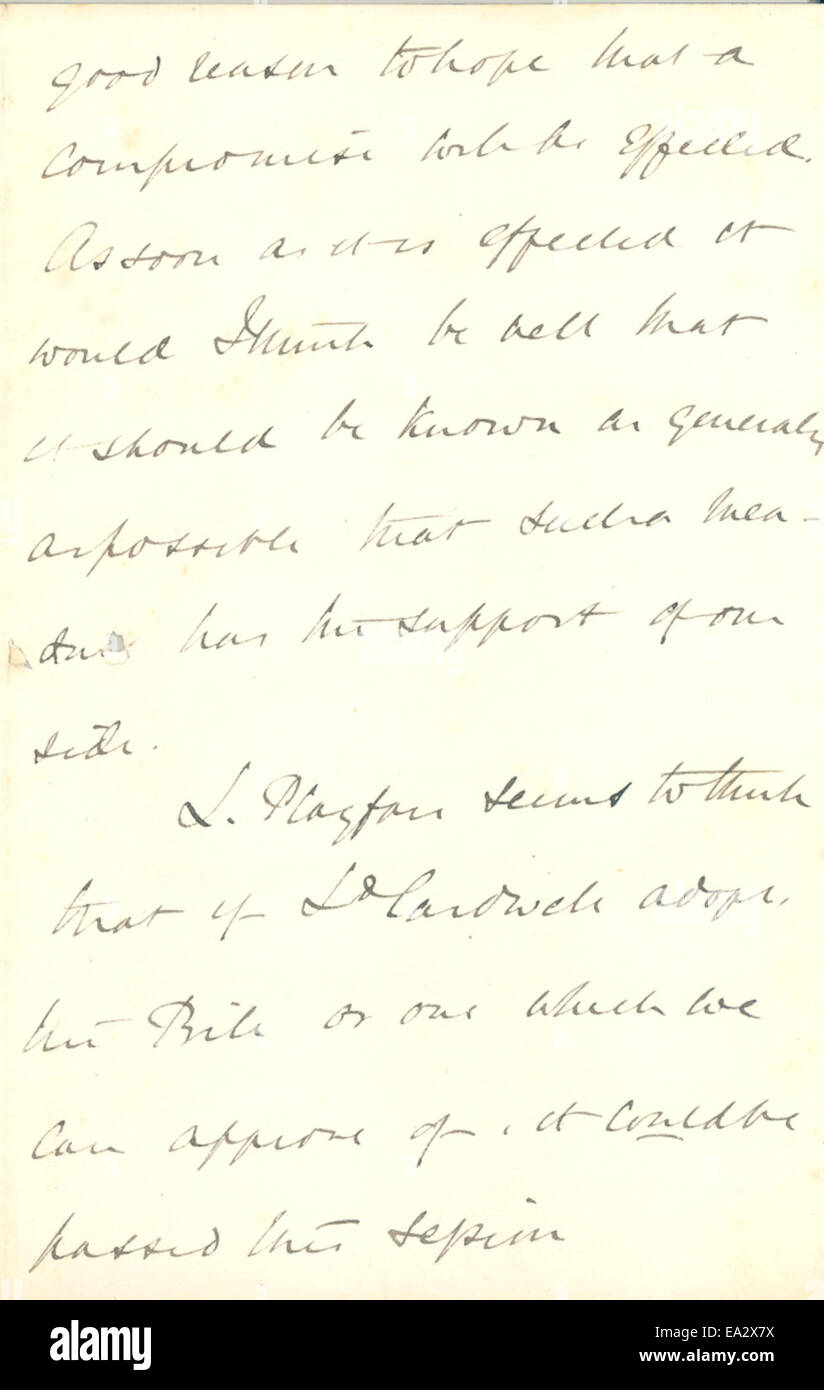 good reason to hope that a
compromise will be effected.
As soon as it is effected it
would I think be well that
it should be known as generally
as possible that such a mea-
sure has the support of our
side.
L. Playfair seems to think
that if Ld Cardwell adopts
his Bill or one which we
can approve of, it could be
passed this session
alamy
Image ID: EA2X7X
www.alamy.com